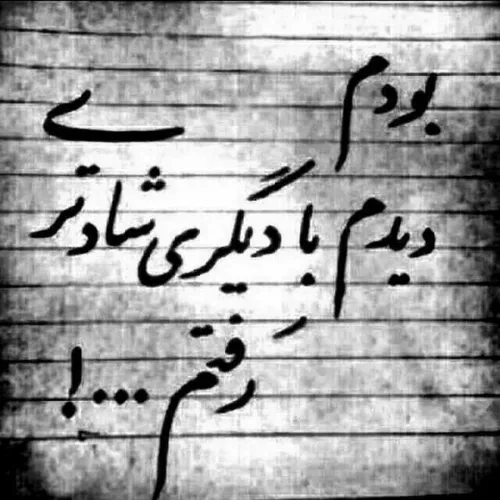 بودم
دیدم با دیگری شادتری
رفتم...!